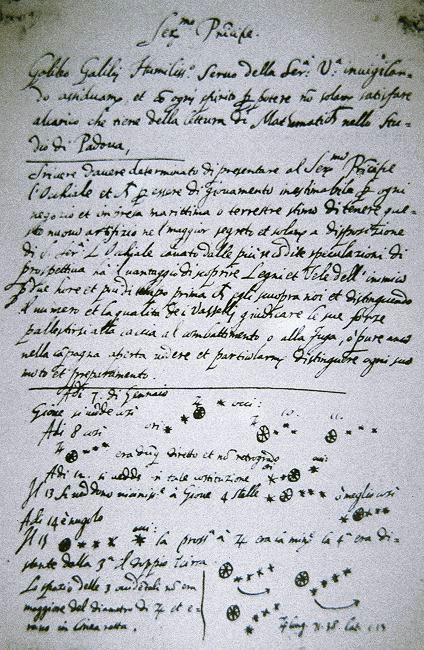 Ser.mo Prīcipe.
Galileo Galilej Humiliss.o Servo della Ser.a V.a invigilan-
do assiduamē, et cō ogni spirito ꝑ potere nō solamē satisfare
al carico che tiene della lettura di Mathematicħ nello Stu-
dio di Padova,
Scrivere d'avere determinato di presentare al Ser.mo Prīcipe
l'Ochiale et ꝑ essere di giovamento inestimabile ꝑ ogni
negozio et impresa marittima o terrestre stimo di tenere que-
sto nuovo artifizio ne'l maggior segreto et solamē a disposizione
di S. Ser.a L'Ochiale cavato dalle più recōdite speculazioni di
prospettiva hà il vantaggio di scoprire Legni et Vele dell'inimico
ꝑ due hore et più di tempo prima ch'egli scuopra noi et distinguendo
il numero et la qualità de i Vasselli giudicare le sue forze
pallestirsi alla caccia al combattimento o alla fuga, o pure anco
nella cāpagna aperta vedere et particolarmē distinguere ogni suo
moto et preparamento.
Adi 7. di Gennaio
Giove si vede così
Adi 8 così
ori:
occi:
10.
11.
era dūq diretto et nō retrogrado
Adi 12. si vedde in tale costituzione
Il 13 si veddono vicinissi.e à Giove 4 stelle
ò meglio così
Adi 14 è nugolo
Il 15
occi:
la pross.a à ♃ era la min.e la 4.a era di-
stante dalla 3.a il doppio īcirca
Lo spazio delle 3 occidētali nō era
maggiore del diametro di ♃ et e-
rano in linea retta.